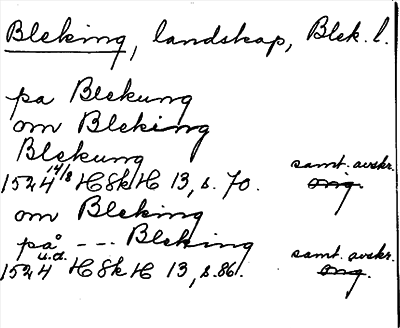 Bleking, landskap, Blek. l.
pa Blekung
om Bleking
Blekung samt. avskr.
1524 14/8 HSkH 13, s. 70. orig.
om Bleking
på --- Bleking samt. avskr.
1524 u.d. HSkH 13, s. 86. orig.